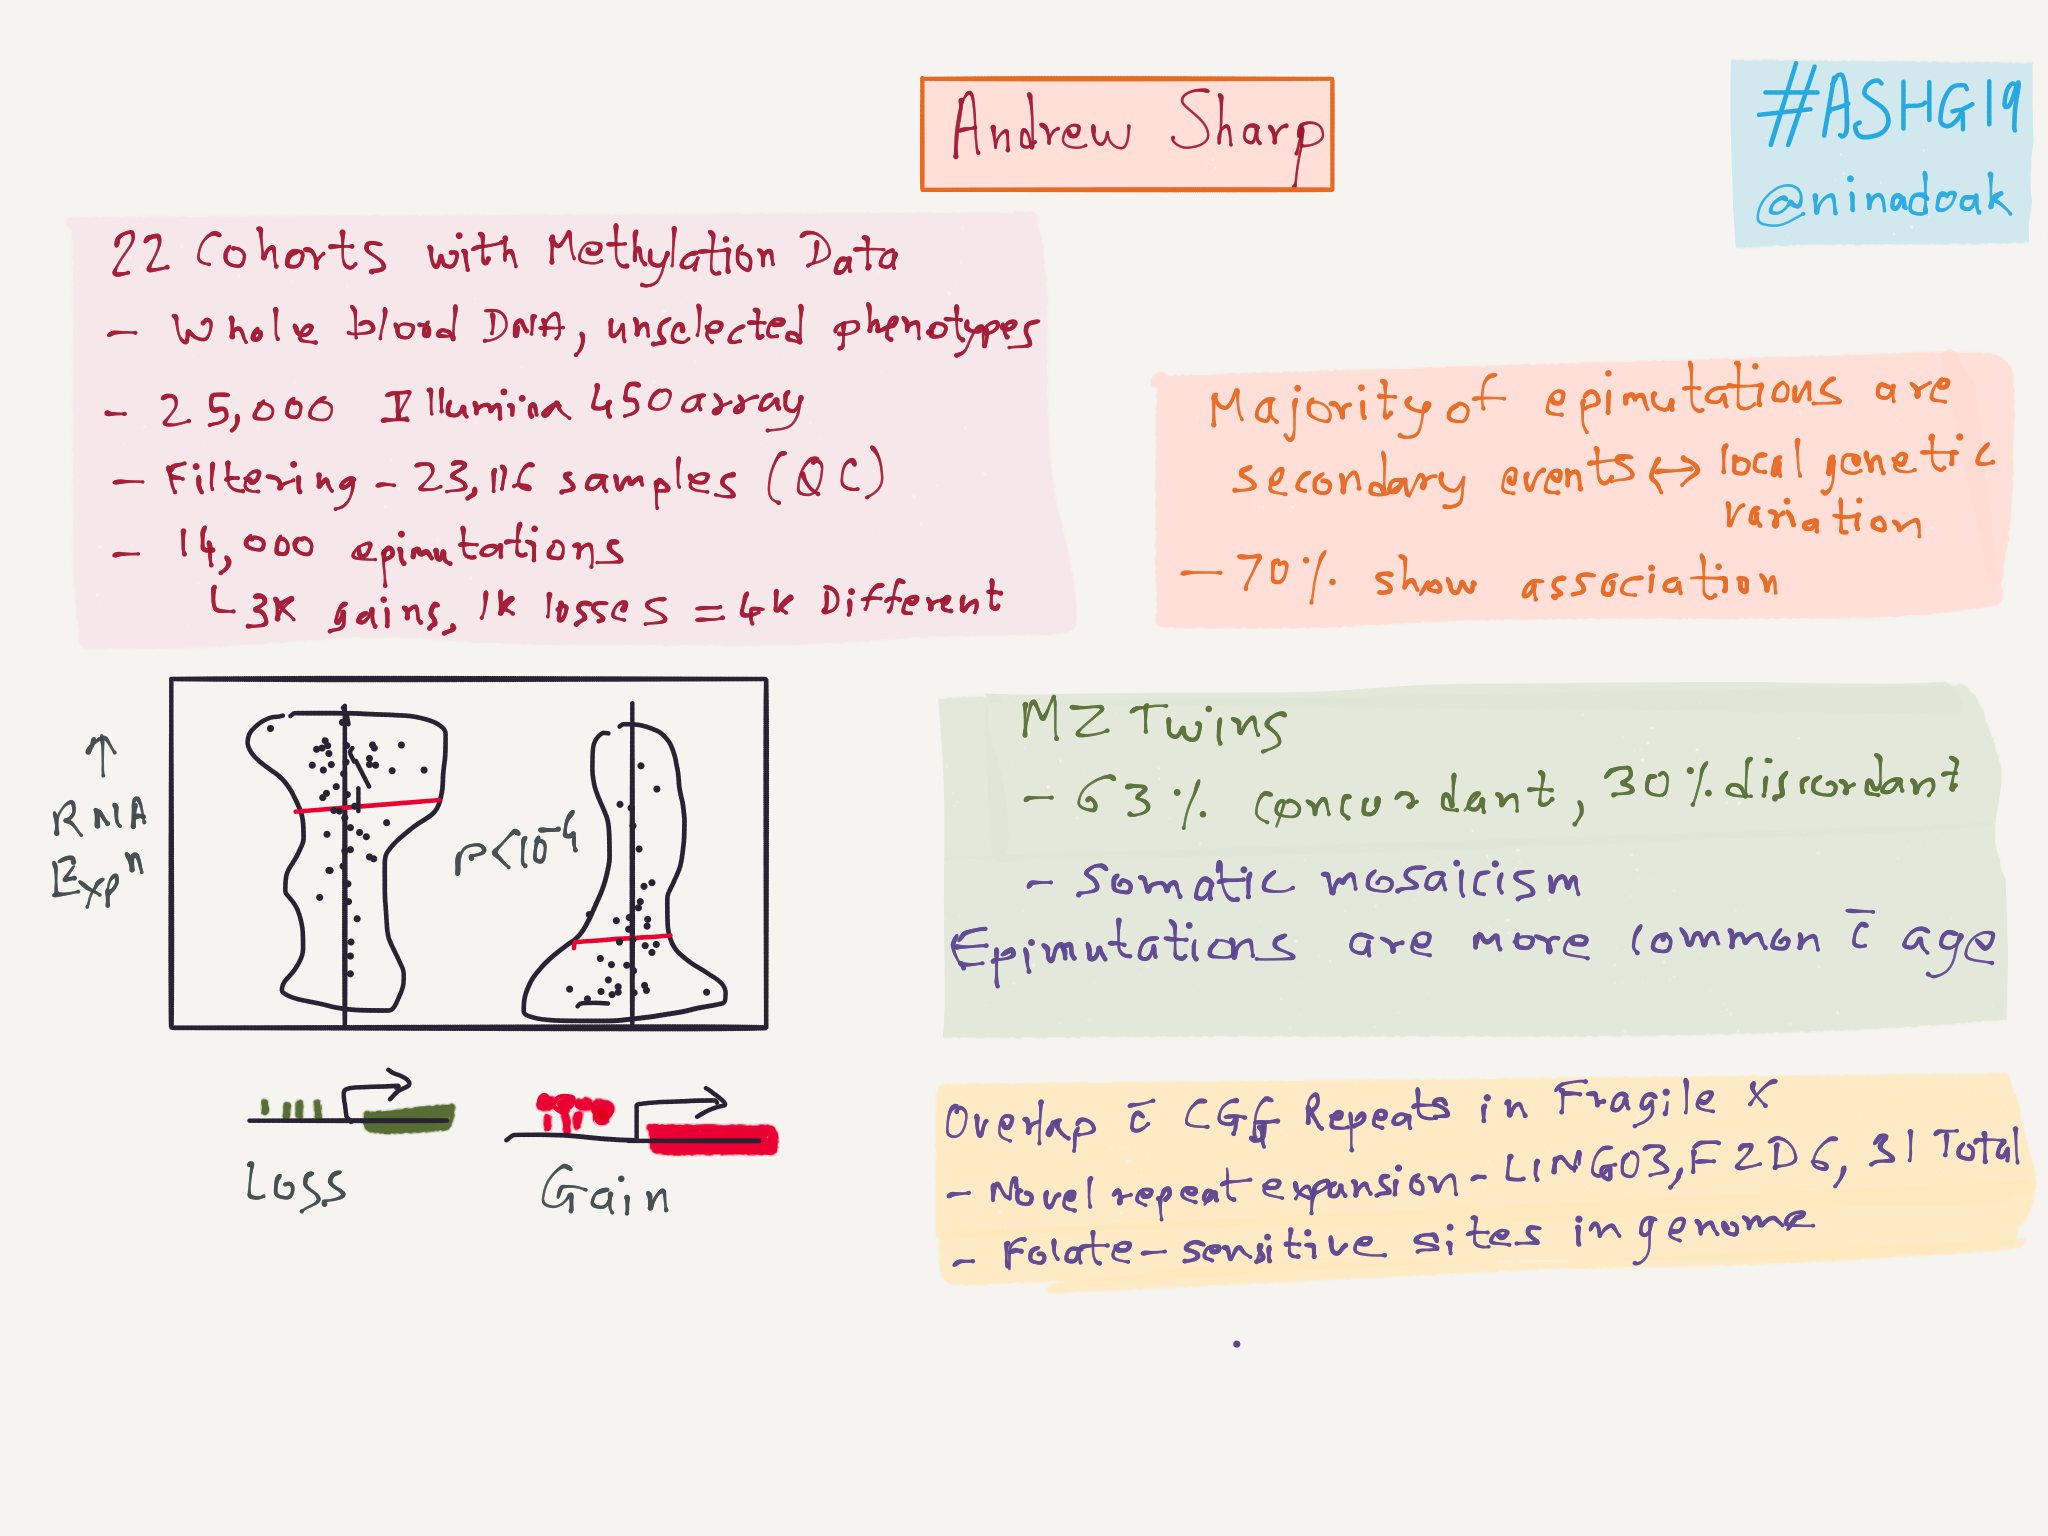 Andrew Sharp
#ASHG19
@ninadoak
22 Cohorts with Methylation Data
- Whole blood DNA, unselected phenotypes
- 25,000 Illumina 450 array
- Filtering - 23,116 samples (QC)
- 14,000 epimutations
└ 3K gains, 1K losses = 4K Different
Majority of epimutations are
secondary events ↔ local genetic
variation
- 70% show association
↑
RNA
Expⁿ
p<10⁻⁴
Loss
Gain
MZ Twins
- 63% concordant, 30% discordant
- Somatic mosaicism
Epimutations are more common c̄ age
Overlap c̄ CGG Repeats in Fragile X
- Novel repeat expansion - LINGO3, F2D6, 31 Total
- Folate-sensitive sites in genome